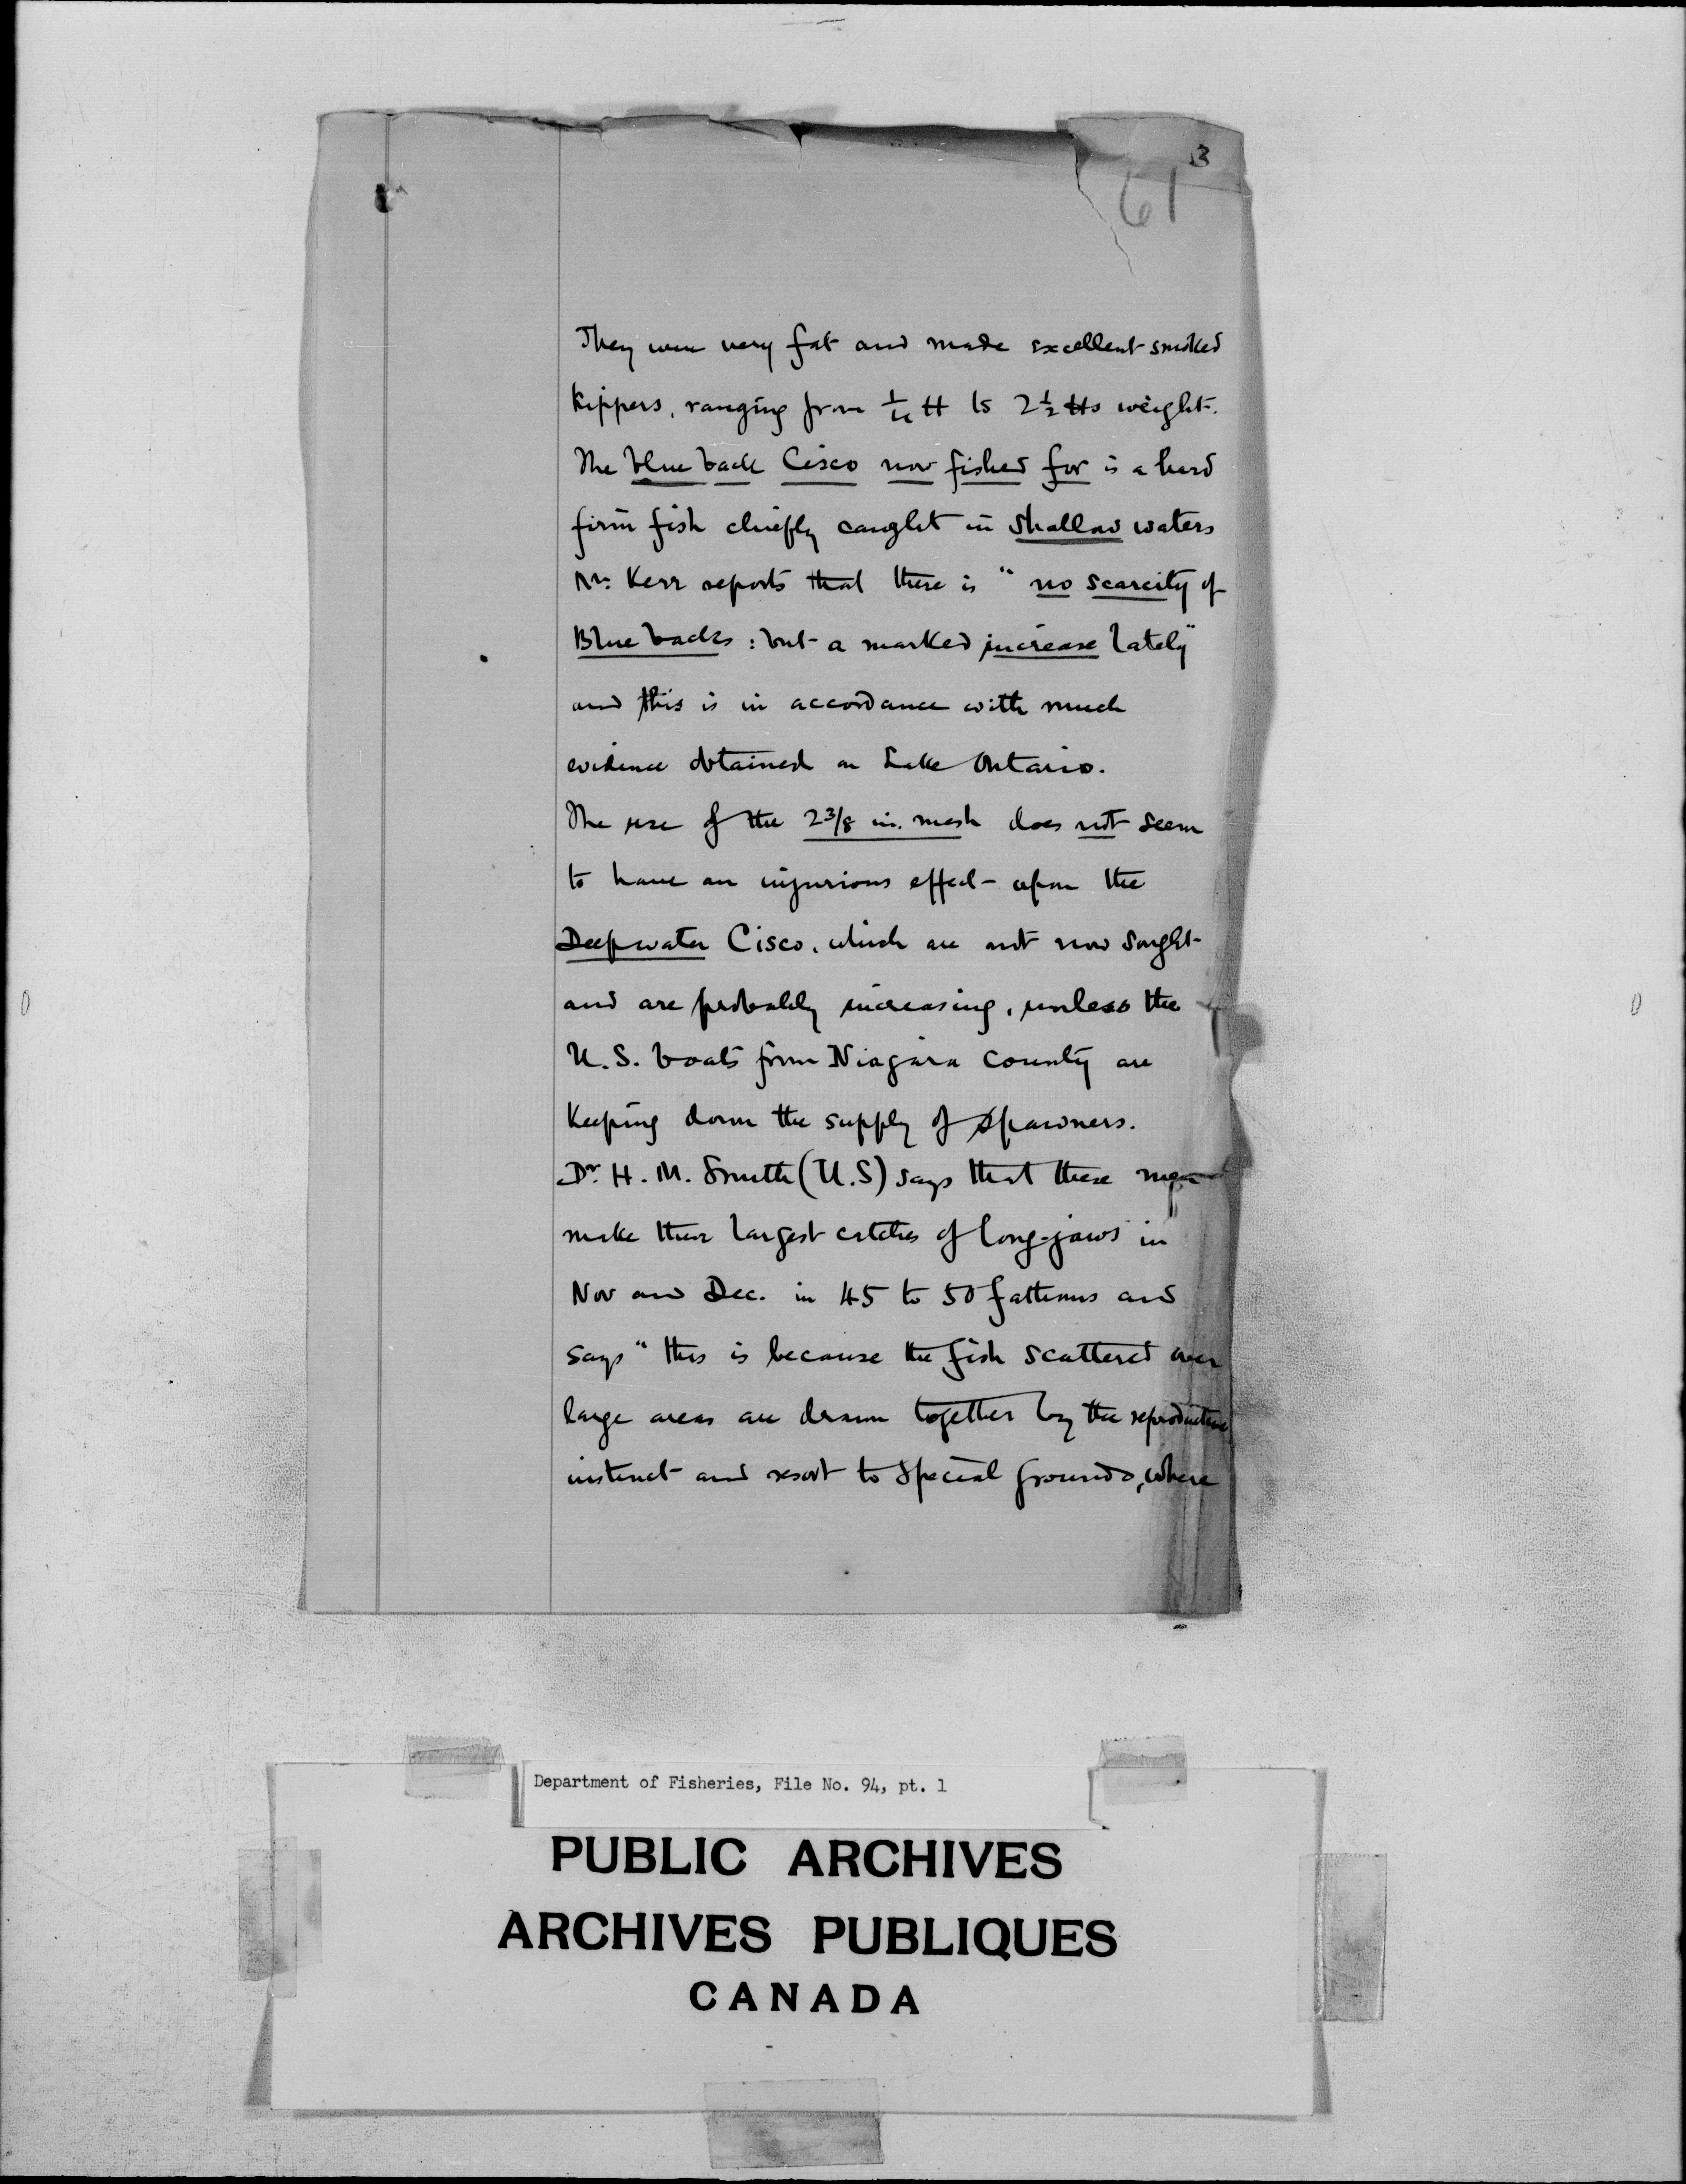 3
61
They were very fat and made excellent smoked
kippers, ranging from ¼ lb to 2½ lbs weight.
The blue back Cisco now fished for is a hard
firm fish chiefly caught in shallow waters
Mr. Kerr reports that there is "no scarcity of
Blue backs : but a marked increase lately"
and this is in accordance with much
evidence obtained on Lake Ontario.
The use of the 2 3/8 in. mesh does not seem
to have an injurious effect upon the
Deepwater Cisco, which are not now sought
and are probably increasing, unless the
U.S. boats from Niagara County are
keeping down the supply of spawners.
Dr. H. M. Smith (U.S) says that these men
make their largest catches of long-jaws in
Nov and Dec. in 45 to 50 fathoms and
says "this is because the fish scattered over
large areas are drawn together by the reproductive
instinct and resort to special grounds, where
Department of Fisheries, File No. 94, pt. 1
PUBLIC ARCHIVES
ARCHIVES PUBLIQUES
CANADA